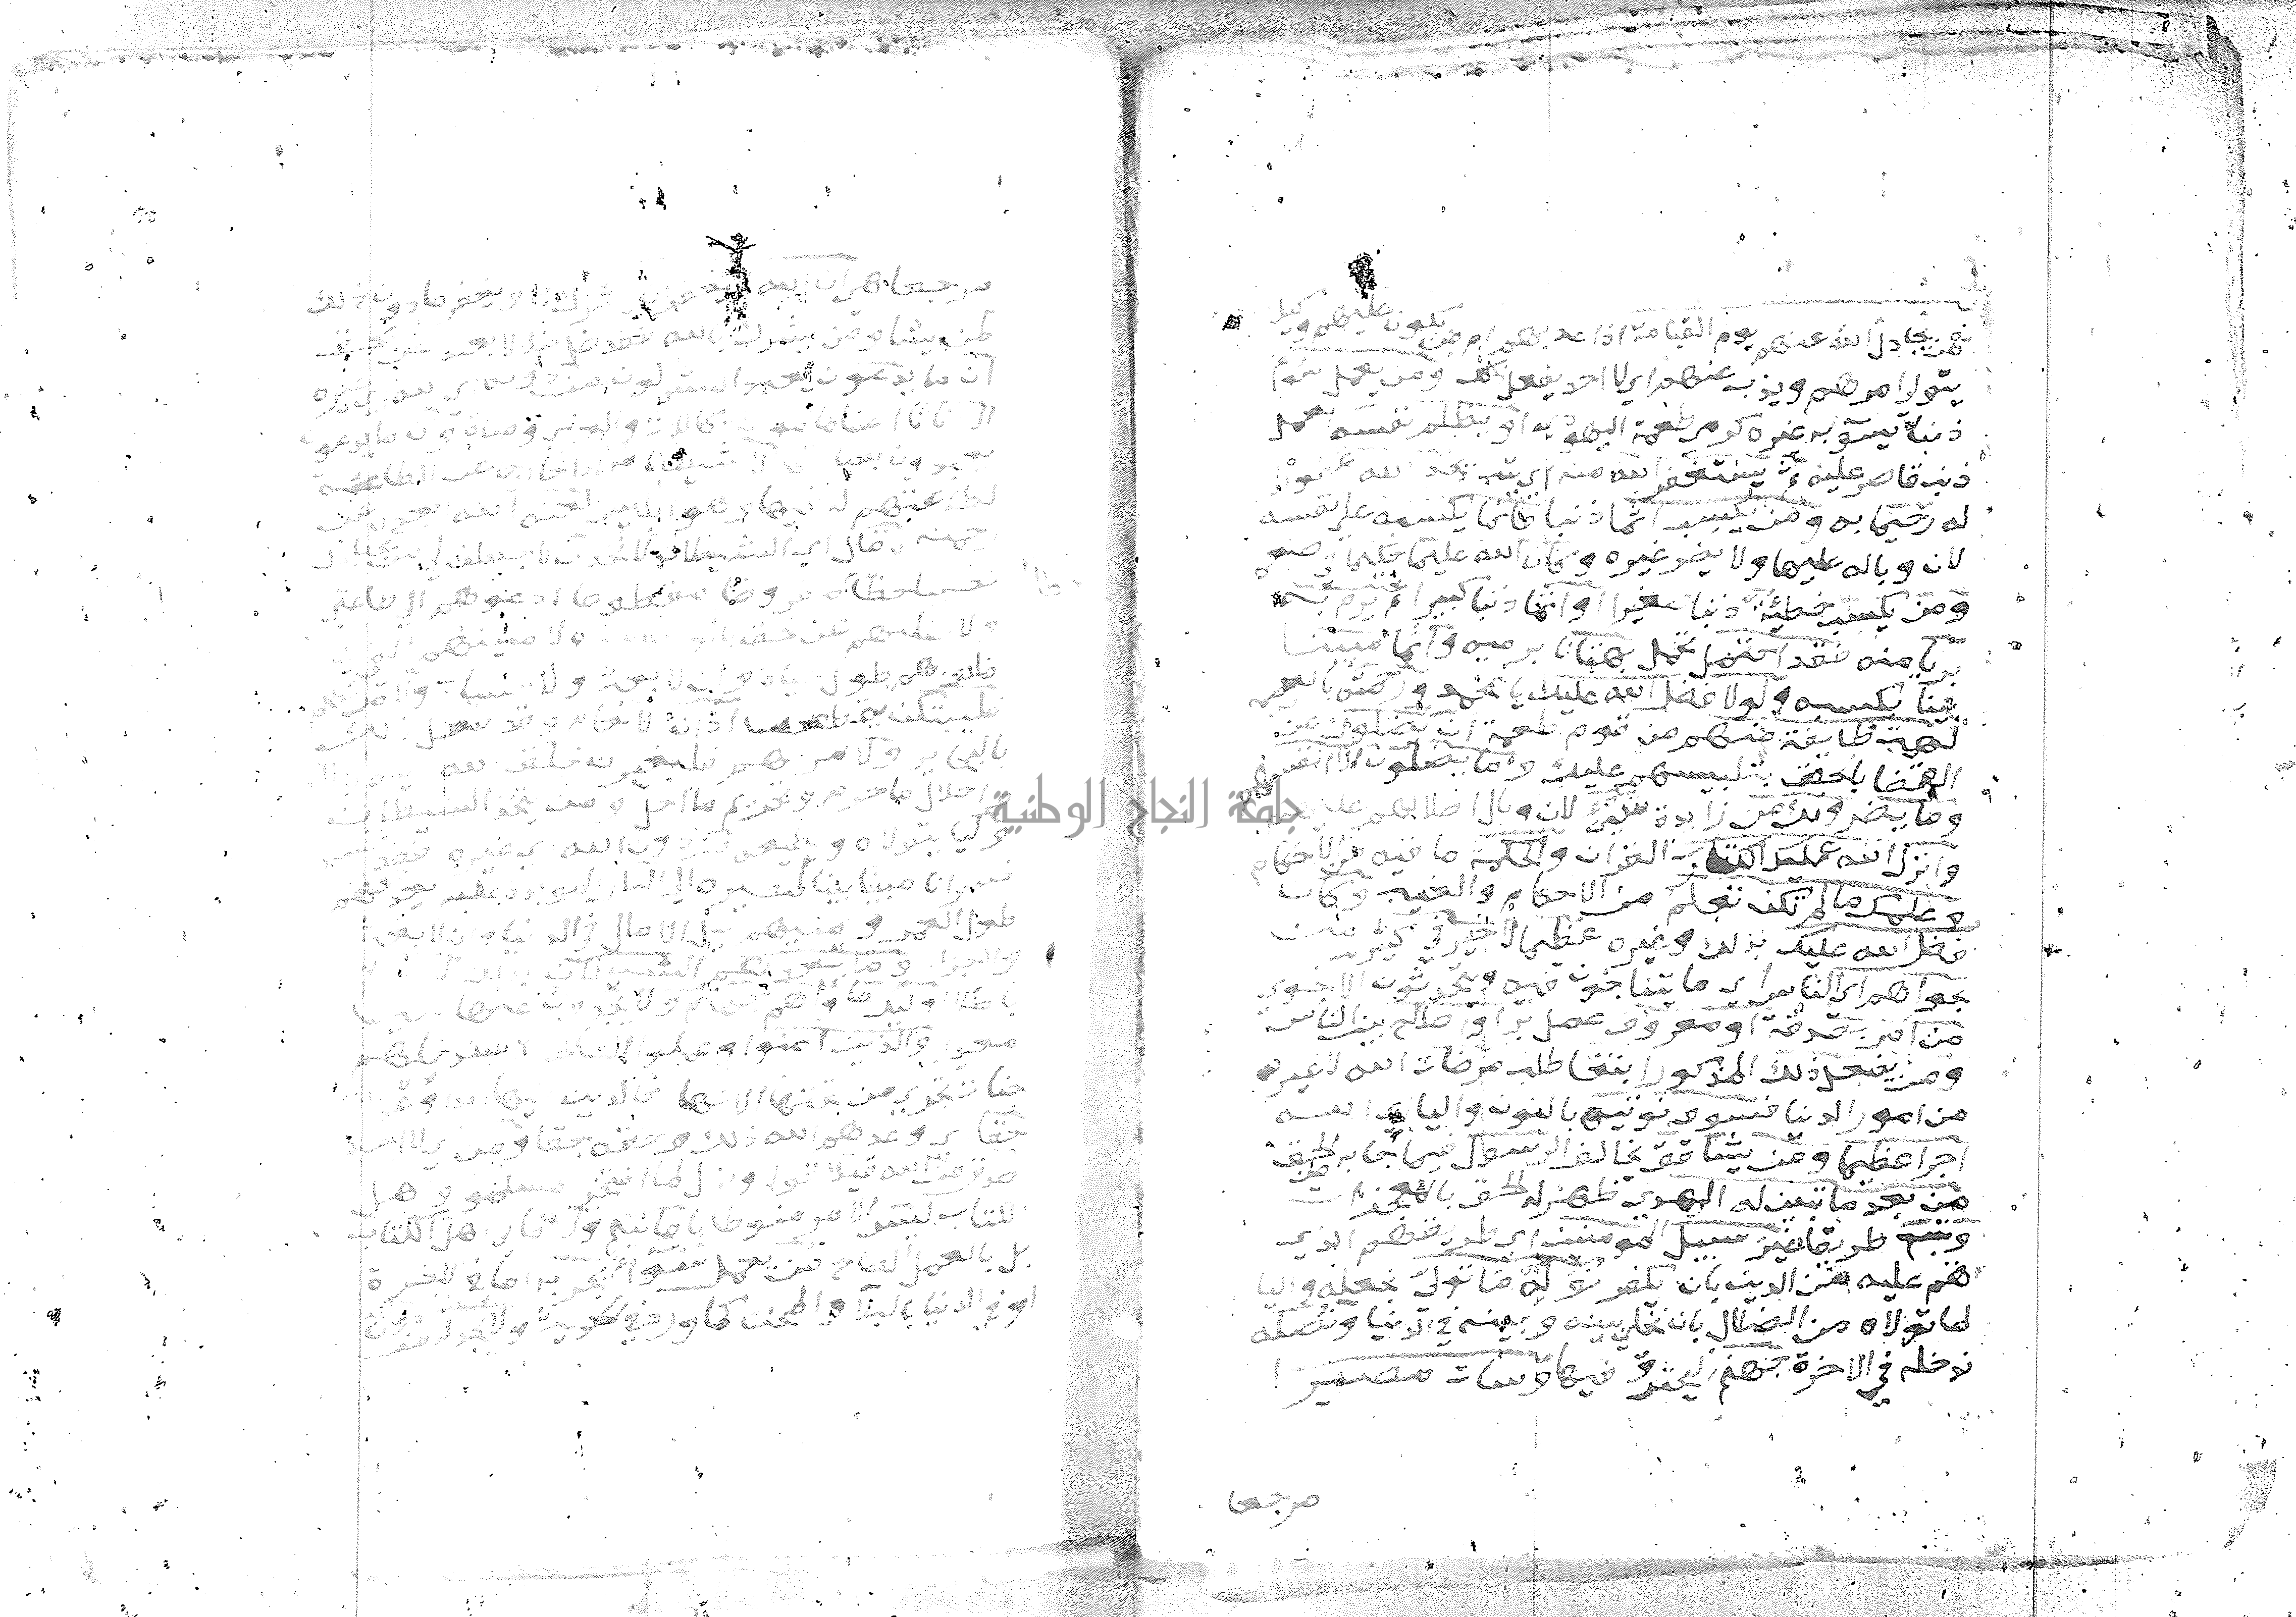 فمن يجادل الله عنهم يوم القيامة اذا عذبهم ام من يكون عليهم وكيلا
يتولا امرهم ويذب عنهم اي لا احد يفعل ذلك ومن يعمل سوءا
ذنبا يسوء به غيره كرمي طعمة اليهودي او يظلم نفسه بعمل
ذنب قاصر عليه ثم يستغفر الله منه اي يتب يجد الله غفورا
له رحيما به ومن يكسب اثما ذنبا فانما يكسبه على نفسه
لان وباله عليها ولا يضر غيره وكان الله عليما حكيما في صنعه
ومن يكسب خطيئة ذنبا صغيرا او اثما ذنبا كبيرا ثم يرم به
بريا منه فقد احتمل تحمل بهتانا برميه واثما مبينا
بينا بكسبه ولولا فضل الله عليك يا محمد ورحمته بالعصمة
لهمت طايفة منهم من قوم طعمة ان يضلوك عن
القضا بالحق بتلبيسهم عليك وما يضلون الا انفسهم
وما يضرونك من زايدة شيء لان وبال اضلالهم عليهم
وانزل الله عليك الكتاب القران والحكمة ما فيه من الاحكام
وعلمك ما لم تكن تعلم من الاحكام والغيب وكان
فضل الله عليك بذلك وغيره عظيما لا خير في كثير من
نجواهم اي الناس اي ما يتناجون فيه ويتحدثون الا نجوى
من امر بصدقة او معروف عمل بر او اصلاح بين الناس
ومن يفعل ذلك المذكور ابتغا طلب مرضات الله لا غيره
من امور الدنيا فسوف نوتيه بالنون واليا اي الله
اجرا عظيما ومن يشاقق يخالف الرسول فيما جا به من الحق
من بعد ما تبين له الهدي ظهر له الحق بالمعجزات
ويتبع طريقا غير سبيل المومنين اي طريقهم الذي
هم عليه من الدين بان يكفر نوله ما تولى نجعله واليا
لما تولاه من الضلال بان نخلي بينه وبينه في الدنيا ونصله
ندخله في الاخرة جهنم ليحترق فيها وسات مصيرا
مرجعا
مرجعا هي ان الله لا يغفر ان يشرك به ويغفر ما دون ذلك
لمن يشا ومن يشرك بالله فقد ضل ضلالا بعيدا عن الحق
ان ما يدعون يعبد المشركون من دونه اي الله اي غيره
الا اناثا اصناما مونثة كاللات والعزي ومناة وان ما يدعون
يعبدون بعبادتها الا شيطانا مريدا خارجا عن الطاعة
لطاعتهم له فيها وهو ابليس لعنه الله ابعده عن
رحمته وقال اي الشيطان لاتخذن لاجعلن لي من عبادك
نصيبا حظا مفروضا مقطوعا ادعوهم الى طاعتي
ولاضلنهم عن الحق بالوسوسة ولامنينهم القي في
قلوبهم طول الحياة وان لا بعث ولا حساب ولامرنهم
فليبتكن يقطعن اذان الانعام وقد فعل ذلك
بالبحاير ولامرنهم فليغيرن خلق الله دينه
احلال ما حرم وتحريم ما احل ومن يتخذ الشيطان
وليا يتولاه ويطيعه من دون الله اي غيره فقد خسر
خسرانا مبينا بينا لمصيره الى النار الموبدة عليه يعدهم
طول العمر ويمنيهم نيل الامال في الدنيا وان لا بعث
والجزا وما يعدهم الشيطان بذلك الا غرورا
باطلا اوليك ماواهم جهنم ولا يجدون عنها محيصا
معدلا والذين امنوا وعملوا الصالحات سندخلهم
جنات تجري من تحتها الانهار خالدين فيها ابدا وعد الله
حقا اي وعدهم الله ذلك وحقه حقا ومن اي لا احد
اصدق من الله قيلا قولا ونزل لما افتخر المسلمون واهل
الكتاب ليس الامر منوطا بامانيكم ولا اماني اهل الكتاب
بل بالعمل الصالح من يعمل سوءا يجز به اما في الاخرة
او في الدنيا بالبلا والمحن كما ورد في الحديث ولا يجد له من دون
جامعة النجاح الوطنية